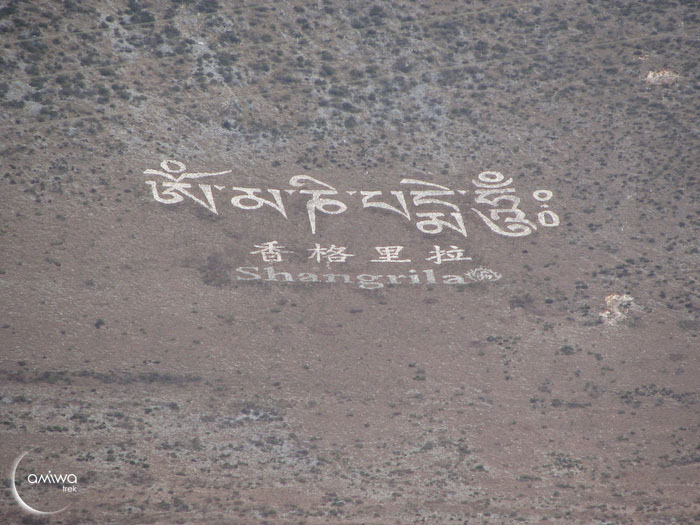 ཨོཾ མ ཎི པ དྨེ ཧཱུྃཿ
香格里拉
Shangrila
amiwa
trek